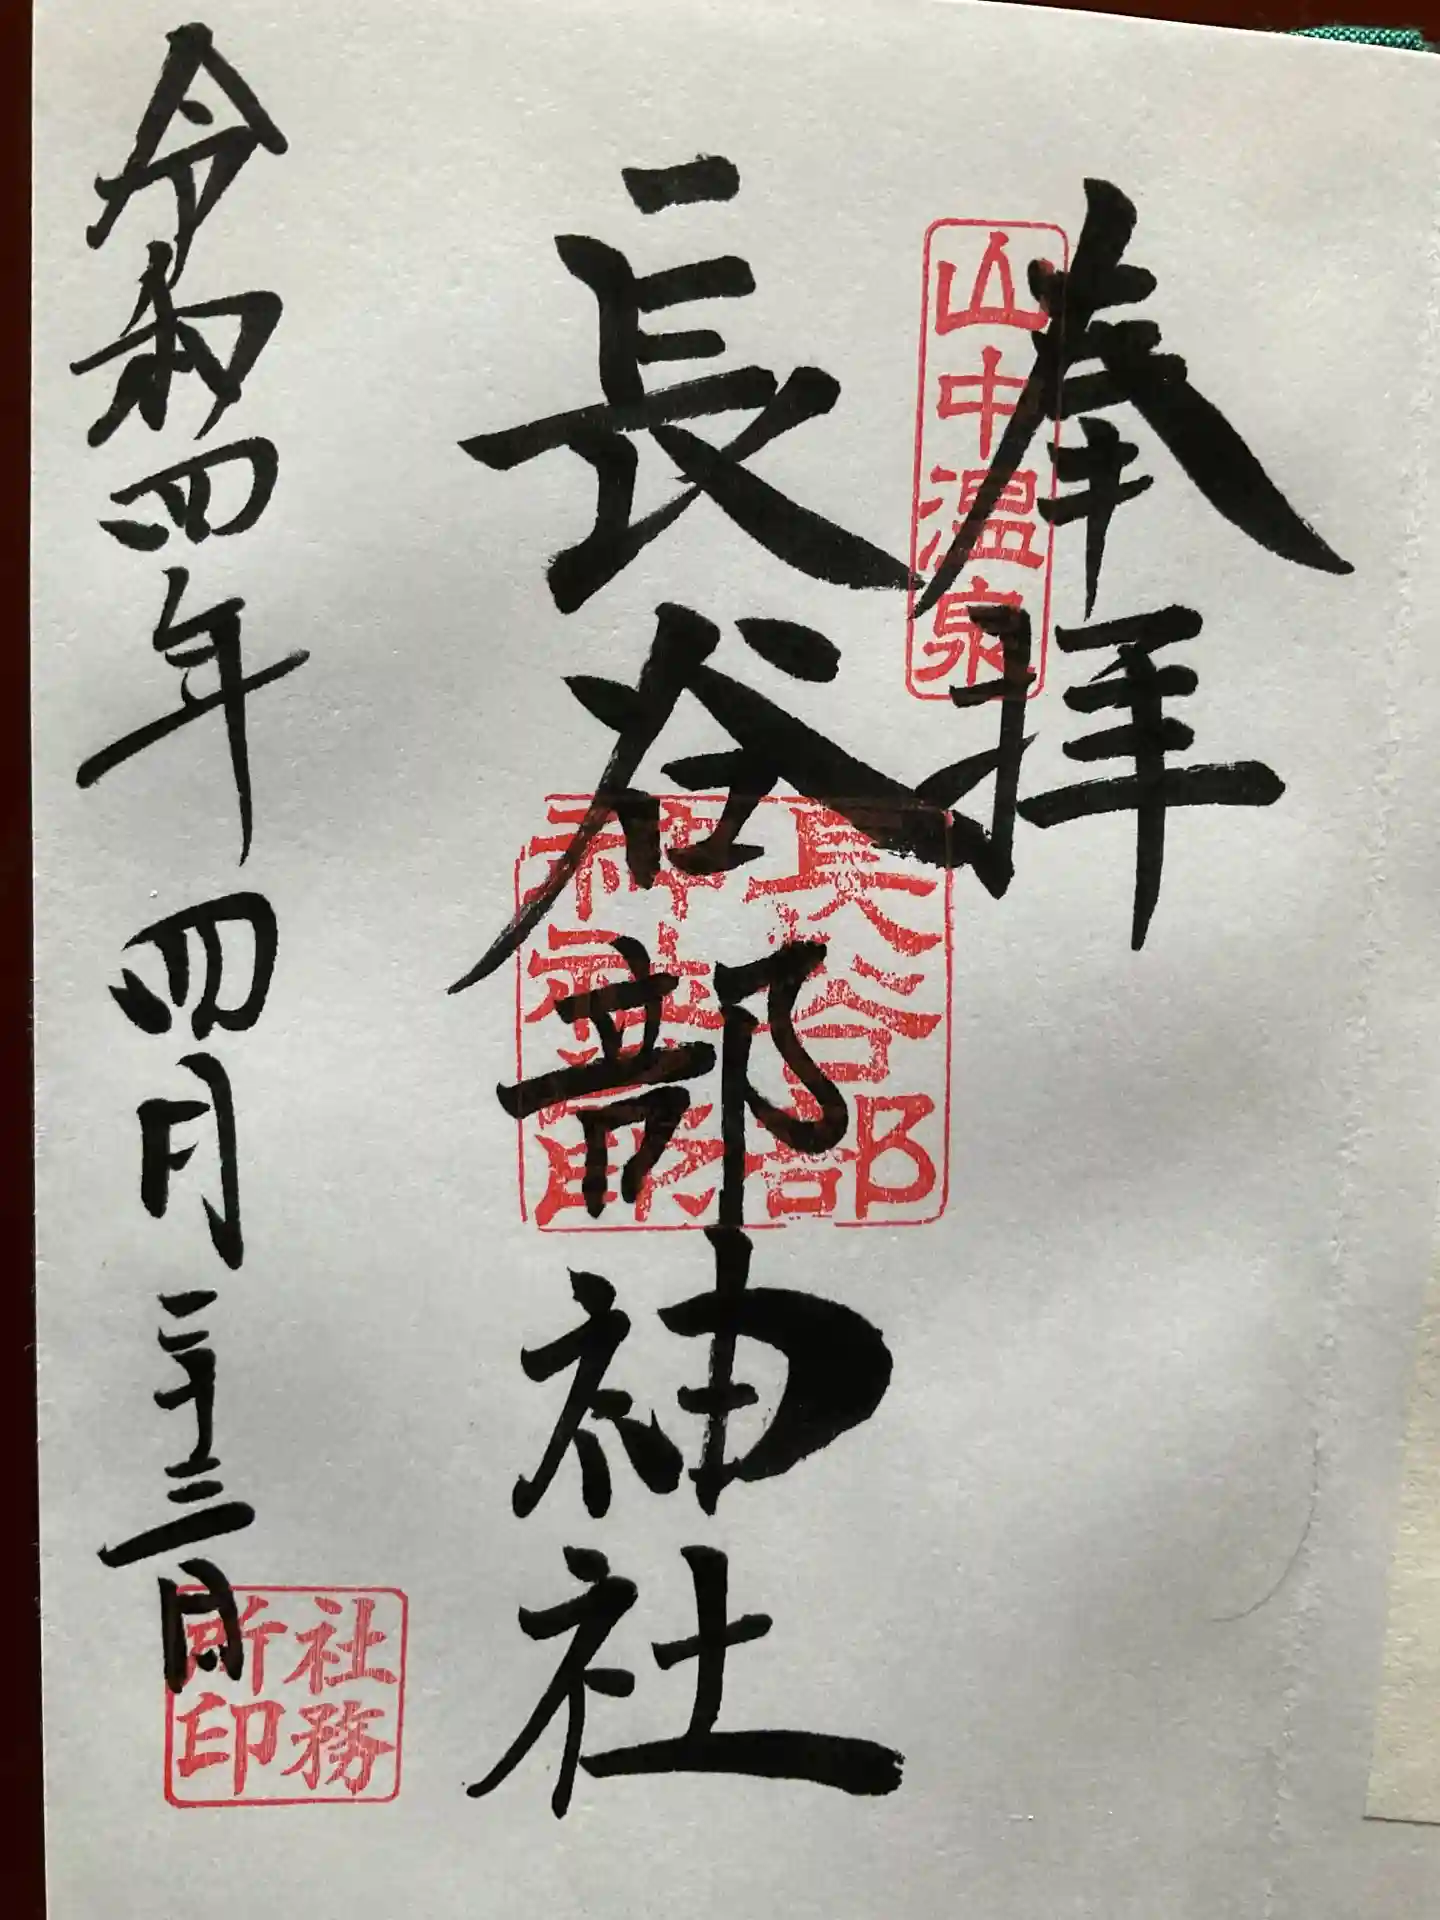 奉拝
山中温泉
長谷部神社
長谷部
神社
令和四年四月二十三日
社務
所印